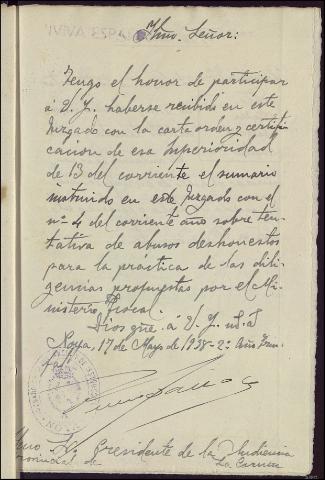 VIVA ESPAÑA
Ilmo. Señor:
Tengo el honor de participar
á V. Y. haberse recibido en este
Juzgado con la carta orden y certifi
cacion de esa Superioridad
de 13 del corriente el sumario
instruido en este Juzgado con el
nº 4 del corriente año sobre ten-
tativa de abusos deshonestos
para la práctica de las dili-
gencias propuestas por el Mi-
nisterio Fiscal.
Dios gue. á V. Y. m. a
Noya, 17 de Mayo de 1938-2º Año Triun
fal.
Ilmo Sr. Presidente de la Audiencia
provincial de La Coruña